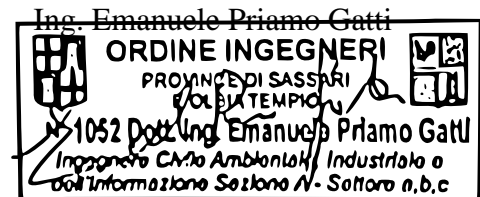 Ing. Emanuele Priamo Gatti
ORDINE INGEGNERI
PROVINCE DI SASSARI
E OLBIA TEMPIO
N° 1052 Dott. Ing. Emanuele Priamo Gatti
Ingegnere Civile Ambientale, Industriale e
dell'Informazione Sezione A - Settore a,b,c